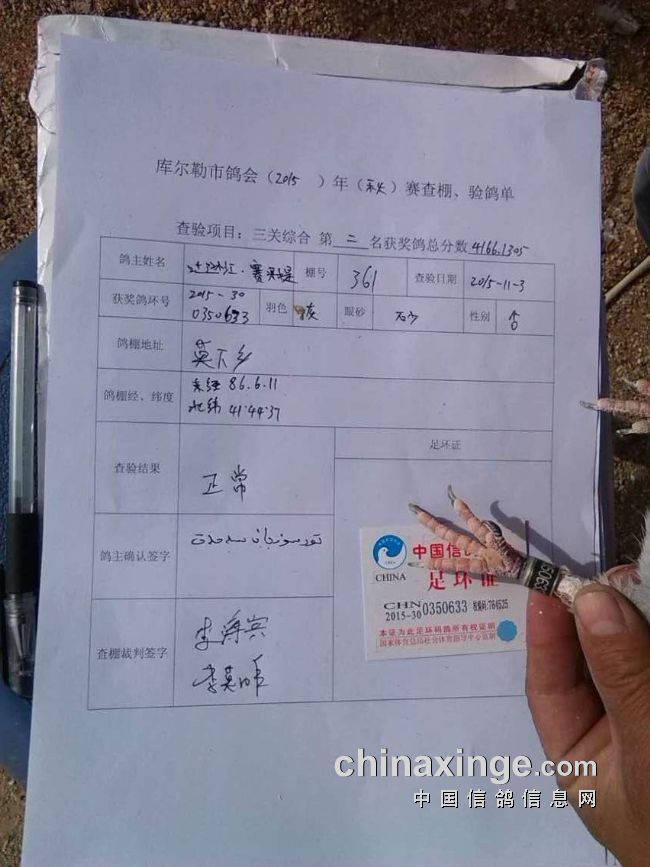 库尔勒市鸽会（2015 ）年（秋）赛查棚、验鸽单
查验项目：三关综合 第 二 名获奖鸽总分数 4166.1305
鸽主姓名 棚号 361 查验日期 2015-11-3
获奖鸽环号 2015-30 0350633 羽色 灰 眼砂 性别
鸽棚地址 英下乡
鸽棚经、纬度 东经 86.6.11
北纬 41.44.37
足环证
查验结果 正常
鸽主确认签字
查棚裁判签字 李海宾
中国信
CHINA 足环证
CHN
2015-30 0350633 校验码:764525
本证为此足环码鸽所有权证明
国家体育总局社会体育指导中心监制
chinaxinge.com
中国信鸽信息网